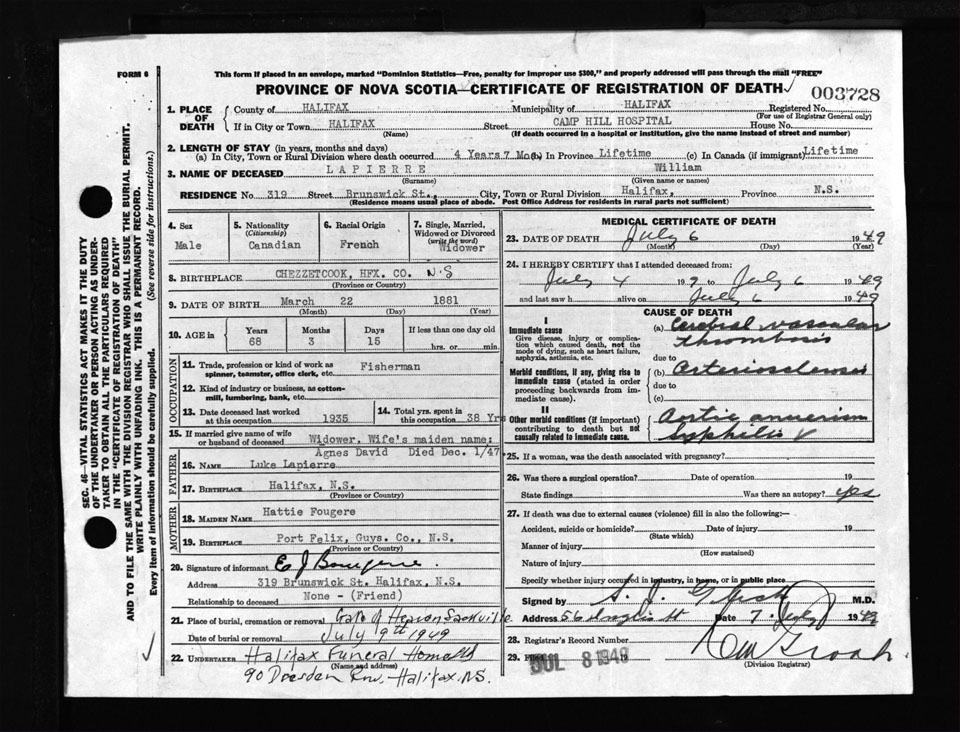 FORM 6
This form if placed in an envelope, marked "Dominion Statistics—Free, penalty for improper use $300," and properly addressed will pass through the mail "FREE"
PROVINCE OF NOVA SCOTIA—CERTIFICATE OF REGISTRATION OF DEATH
003728
1. PLACE OF DEATH
County of HALIFAX Municipality of HALIFAX Registered No.
(For use of Registrar General only)
If in City or Town HALIFAX Street CAMP HILL HOSPITAL House No.
(Name) (If death occurred in a hospital or institution, give the name instead of street and number)
2. LENGTH OF STAY (in years, months and days)
(a) In City, Town or Rural Division where death occurred 4 Years 7 Mos (b) In Province Lifetime (c) In Canada (if immigrant) Lifetime
3. NAME OF DECEASED LAPIERRE William
(Surname) (Given name or names)
RESIDENCE No. 319 Street Brunswick St., City, Town or Rural Division Halifax, Province N.S.
(Residence means usual place of abode. Post Office Address for residents in rural parts not sufficient)
4. Sex
Male
5. Nationality
(Citizenship)
Canadian
6. Racial Origin
French
7. Single, Married, Widowed or Divorced
(write the word)
Widower
8. BIRTHPLACE CHEZZETCOOK, HFX. CO. N.S
(Province or Country)
9. DATE OF BIRTH March 22 1881
(Month) (Day) (Year)
10. AGE in
Years Months Days If less than one day old
68 3 15 hrs. or min.
OCCUPATION
11. Trade, profession or kind of work as spinner, teamster, office clerk, etc. Fisherman
12. Kind of industry or business, as cotton-mill, lumbering, bank, etc.
13. Date deceased last worked at this occupation 1935
14. Total yrs. spent in this occupation 38 Yrs
15. If married give name of wife or husband of deceased Widower. Wife's maiden name;
Agnes David Died Dec. 1/47
FATHER
16. NAME Luke Lapierre
17. BIRTHPLACE Halifax, N.S.
(Province or Country)
MOTHER
18. MAIDEN NAME Hattie Fougere
19. BIRTHPLACE Port Felix, Guys. Co., N.S.
(Province or Country)
20. Signature of informant E J
Address 319 Brunswick St. Halifax, N.S.
Relationship to deceased None - (Friend)
21. Place of burial, cremation or removal Gate of Heaven Sackville
Date of burial or removal July 9th 1949
22. UNDERTAKER Halifax Funeral Home
(Name and address)
90 Dresden Row, Halifax, N.S.
MEDICAL CERTIFICATE OF DEATH
23. DATE OF DEATH July 6 1949
(Month) (Day) (Year)
24. I HEREBY CERTIFY that I attended deceased from:
July 4 1949 to July 6 1949
and last saw h alive on July 6 1949
CAUSE OF DEATH
I
Immediate cause
Give disease, injury or complication which caused death, not the mode of dying, such as heart failure, asphyxia, asthenia, etc.
(a) Cerebral vascular thrombosis
due to
Morbid conditions, if any, giving rise to immediate cause (stated in order proceeding backwards from immediate cause).
(b) Arteriosclerosis
due to
(c)
II
Other morbid conditions (if important) contributing to death but not causally related to immediate cause.
Aortic anuerism
Syphilis
25. If a woman, was the death associated with pregnancy?
26. Was there a surgical operation? Date of operation 19
State findings Was there an autopsy? yes
27. If death was due to external causes (violence) fill in also the following:—
Accident, suicide or homicide? Date of injury 19
(State which)
Manner of injury
(How sustained)
Nature of injury
Specify whether injury occurred in industry, in home, or in public place
Signed by M.D.
Address 56 Date 7 July 1949
28. Registrar's Record Number
29. JUL 8 1949
(Division Registrar)
SEC. 46—VITAL STATISTICS ACT MAKES IT THE DUTY OF THE UNDERTAKER OR PERSON ACTING AS UNDERTAKER TO OBTAIN ALL THE PARTICULARS REQUIRED IN THE "CERTIFICATE OF REGISTRATION OF DEATH" AND TO FILE THE SAME WITH THE DIVISION REGISTRAR WHO SHALL ISSUE THE BURIAL PERMIT.
WRITE PLAINLY WITH UNFADING INK. THIS IS A PERMANENT RECORD.
Every item of information should be carefully supplied. (See reverse side for instructions.)